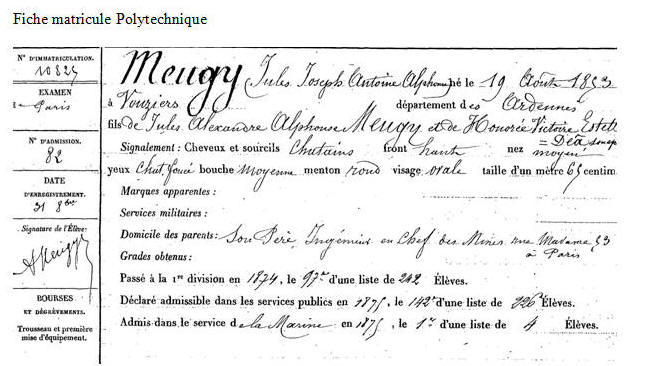 Fiche matricule Polytechnique
N° D'IMMATRICULATION.
10825
EXAMEN
Paris
N° D'ADMISSION.
82
DATE
D'ENREGISTREMENT.
31 8bre
Signature de l'Élève:
AMeugy
BOURSES
ET DÉGRÈVEMENTS.
Trousseau et première
mise d'équipement.
Meugy Jules Joseph Antoine Alphonse né le 19 Août 1853
à Vouziers département des Ardennes
fils de Jules Alexandre Alphonse Meugy et de Honorée Victoire Estelle
Signalement: Cheveux et sourcils Chatains front haut nez moyen
yeux Chat. foncé bouche moyenne menton rond visage ovale taille d'un mètre 65 centim
Marques apparentes:
Services militaires:
Domicile des parents: Son Père Ingénieur en Chef des Mines rue Madame 53
à Paris
Grades obtenus:
Passé à la 1re division en 1874, le 97e d'une liste de 242 Élèves.
Déclaré admissible dans les services publics en 1875, le 142e d'une liste de 226 Élèves.
Admis dans le service de la Marine en 1875, le 1er d'une liste de 4 Élèves.